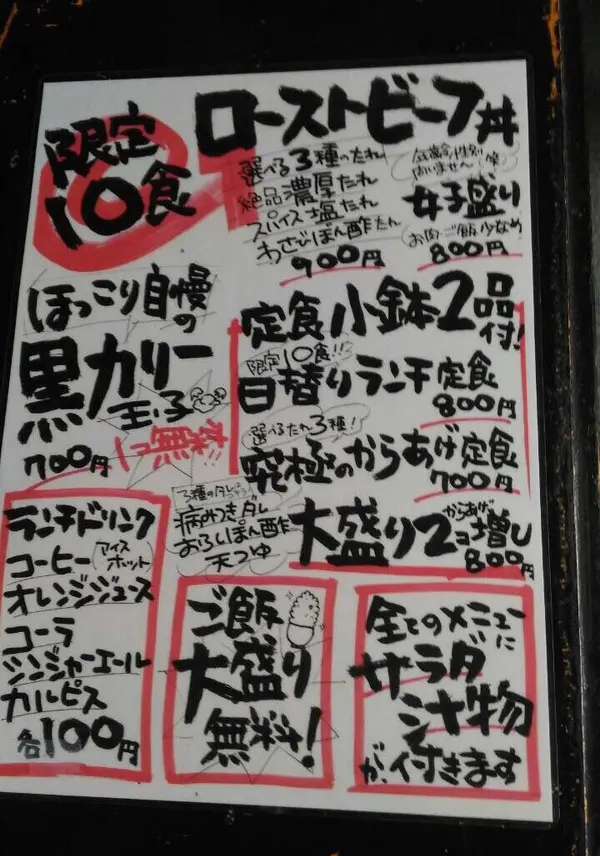 限定
10食
ローストビーフ丼
選べる3種のたれ
絶品濃厚たれ
スパイス塩たれ
わさびぽん酢たれ
900円
年齢・性別
問いません(笑)
女子盛り
(お肉・ご飯少なめ)
800円
ほっこり自慢
の
黒カリー
玉子
700円
定食小鉢2品
付!
限定10食!!
日替りランチ定食
800円
選べるたれ3種!
究極のからあげ定食
700円
大盛り からあげ2コ増し
800円
3種のタレ
病みつきダレ
おろしぽん酢
天つゆ
ランチドリンク
コーヒー(アイス
ホット)
オレンジジュース
コーラ
ジンジャーエール
カルピス
各100円
ご飯
大盛り
無料!
全てのメニューに
サラダ
汁物
が、付きます